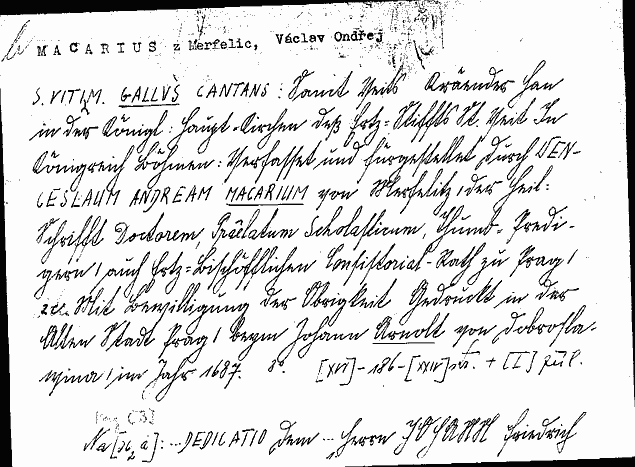 MACARIUS z Merfelic, Václav Ondřej
S. VITI M. GALLVS CANTANS : Sanct Veits Kräender Han
in der Königl: Haupt-Kirchen deß Ertz=Stiffts St. Veit In
Königreich Böhmen: Verfasset und fürgestellet durch WEN-
CESLAUM ANDREAM MACARIUM von Merfelitz, der Heil:
Schrifft Doctorem, Praelatum Scholasticum, Thumb-Predi-
gern / auch Ertz=Bischöfflichen Consistorial-Rath zu Prag /
zc. Mit Bewilligung der Obrigkeit Gedruckt in der
Alten Stadt Prag / beym Johann Arnolt von Dobrosla-
wina / im Jahr 1687. 8°. [XVI]-186-[XXIV] + [I] příl.
DEDICATIO Dem ... Herrn JOHANN Friedrich